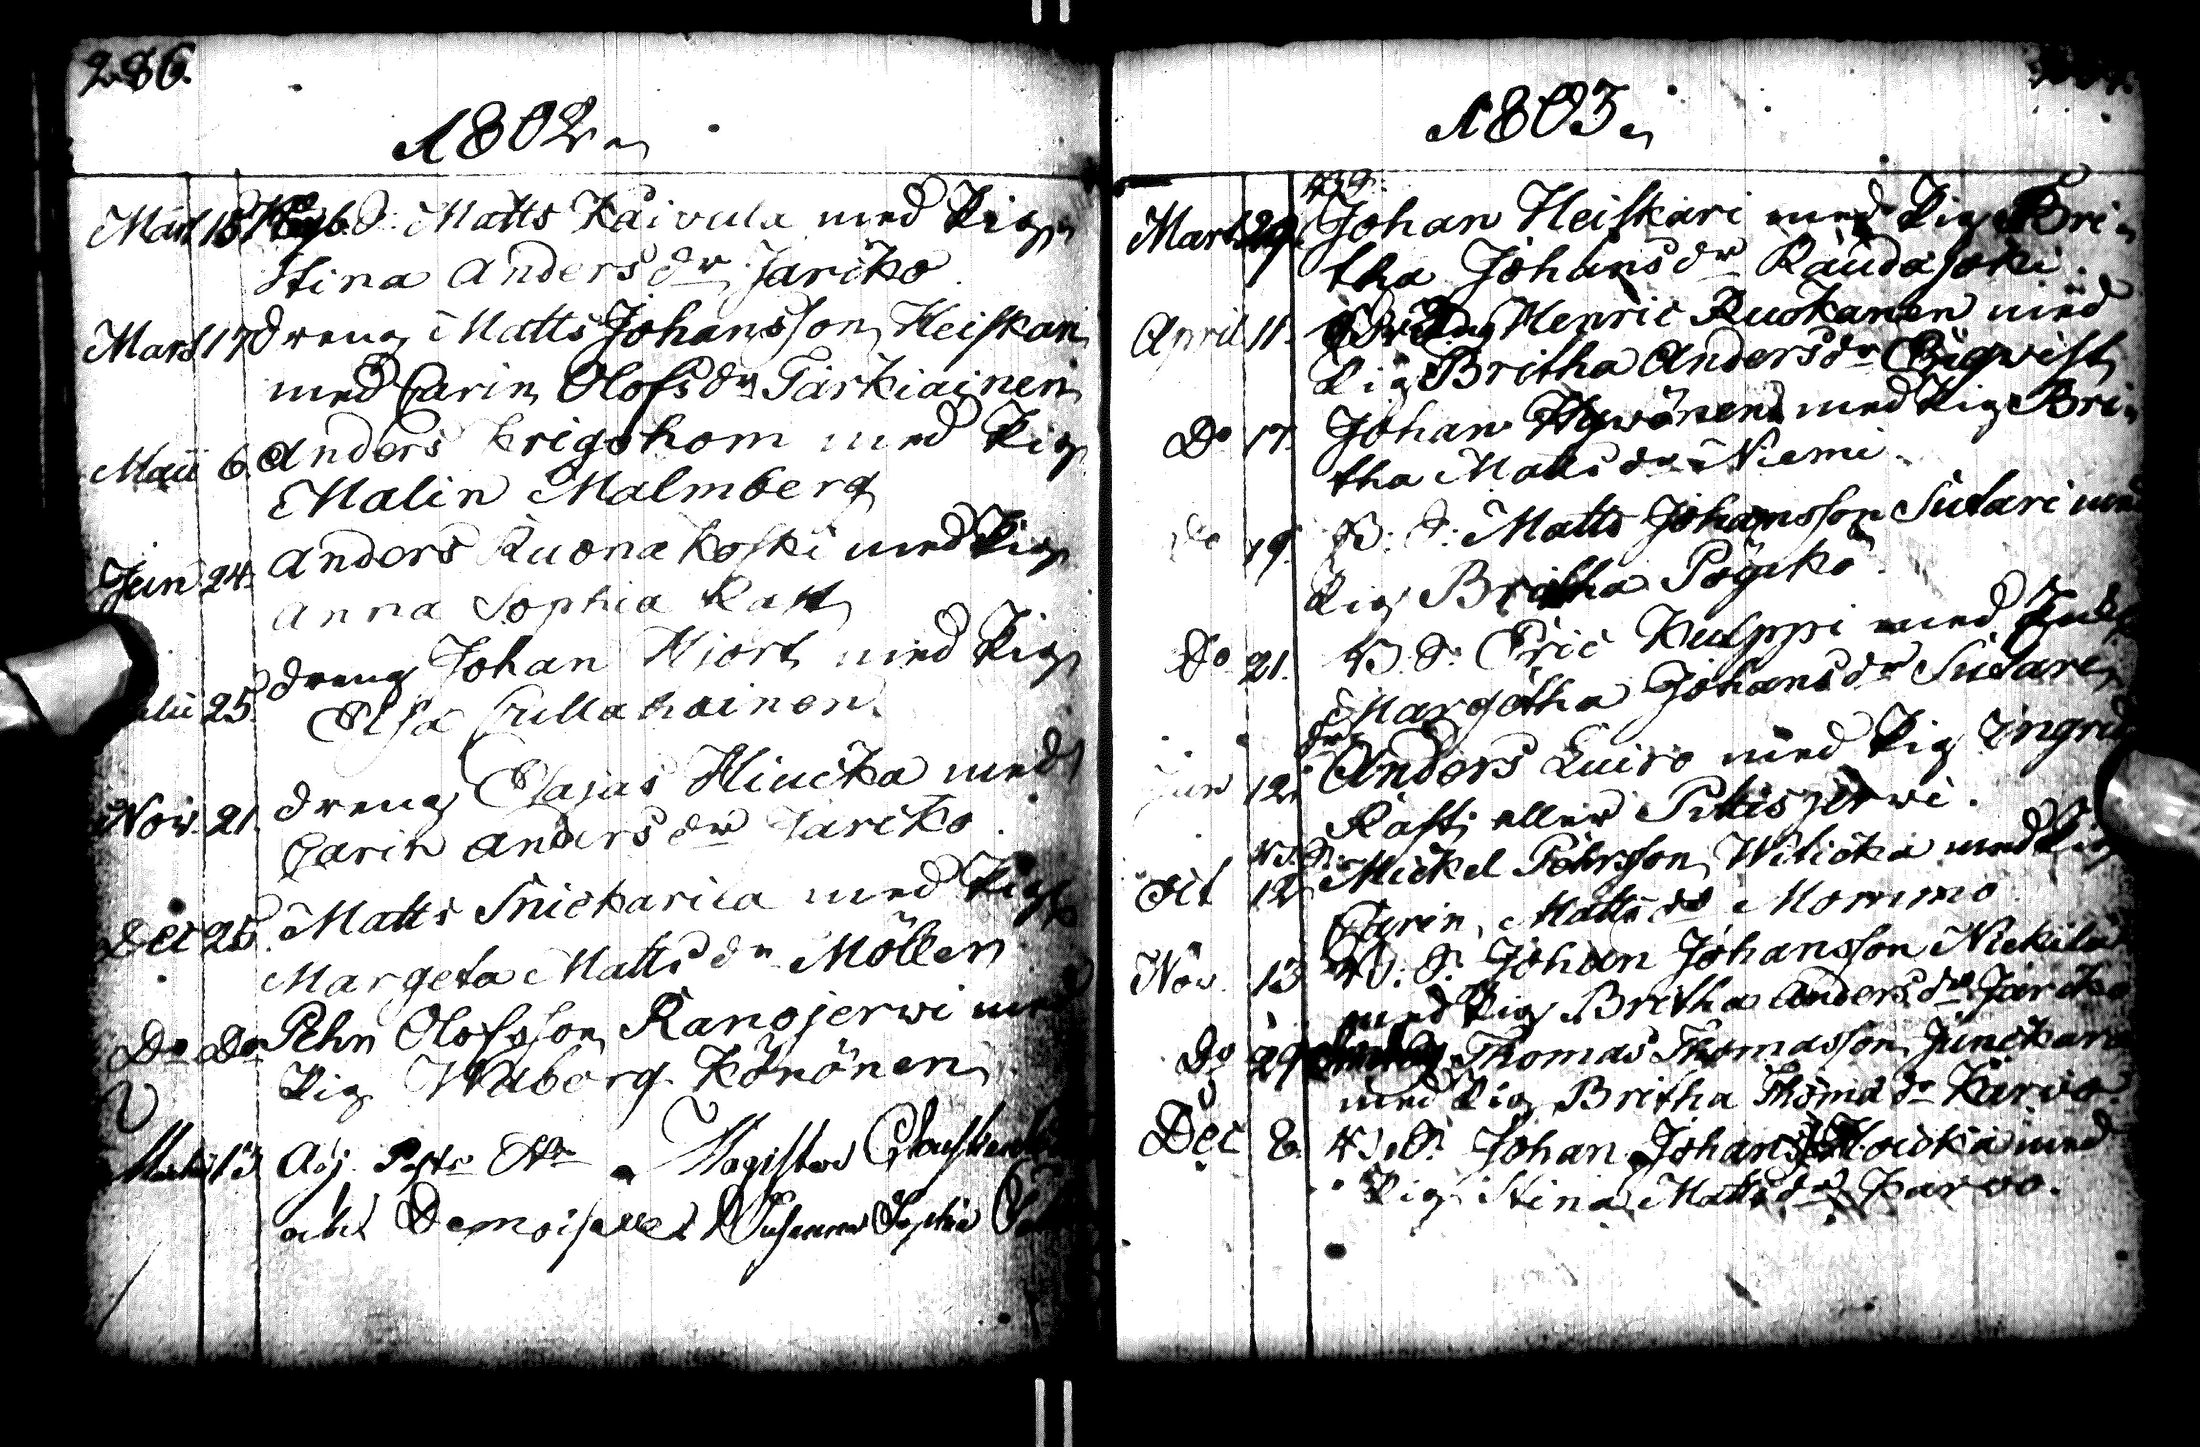 286.
1802.
Mart 15 B. S: Matts Kaivula med Pig
Stina Andersdr Jaricko.
Mart 17 Dreng Matts Johansson Heiskari
med Carin Olofsdr Tarkiainen
Maii 6. Anders Krigshom med Pig
Malin Malmberg
Jun 24. Anders Kuonakoski med Pig
Anna Sophia Raft
25. Dreng Johan Hjort med Pig
Elsa Cullahainen.
Nov. 21. Dreng Esajas Hiucka med
Carin Andersdr Jaricko.
Dec 25. Matts Snickarila med Pig
Margeta Mattsdr Möller
Do Do Pehr Olofsson Ranojerwi med
Pig Waborg Könönen
13 Adj. Past Hr Magister
och Demoiselle Susanna Sophia
1803.
B. S:
Mart. 29. Johan Heiskari med Pig Bri-
tha Johansdr Raudasoki.
April 11. Dreng Henric Ruokanen med
Pig Britha Andersdr Engwist
Do 17. Johan Hywönen med Pig Bri-
tha Mattsdr Niemi.
Do 19. B: S: Matts Johansson Sutari med
Pig Britha Pöyckö
Do 21. B. S: Eric Kulppi med
Margetha Johansdr Sutare
Dr
Jun 12. Anders Luiro med Pig Ingrid
Raft eller Pittisjerwi.
B. S:
Oct 12 Mickel Pehrsson Wilicka med Pig
Carin Mattsdr Mommo
Nov. 13 B: S: Johan Johansson Nickila
med Pig Britha Andersdr Jaricko
Do 29 Dreng Thomas Thomasson Junckara
med Pig Britha Thomadr Karvo.
Dec 8. B. S: Johan Johans Houcka med
Pig Stina Mattsdr Karvo.